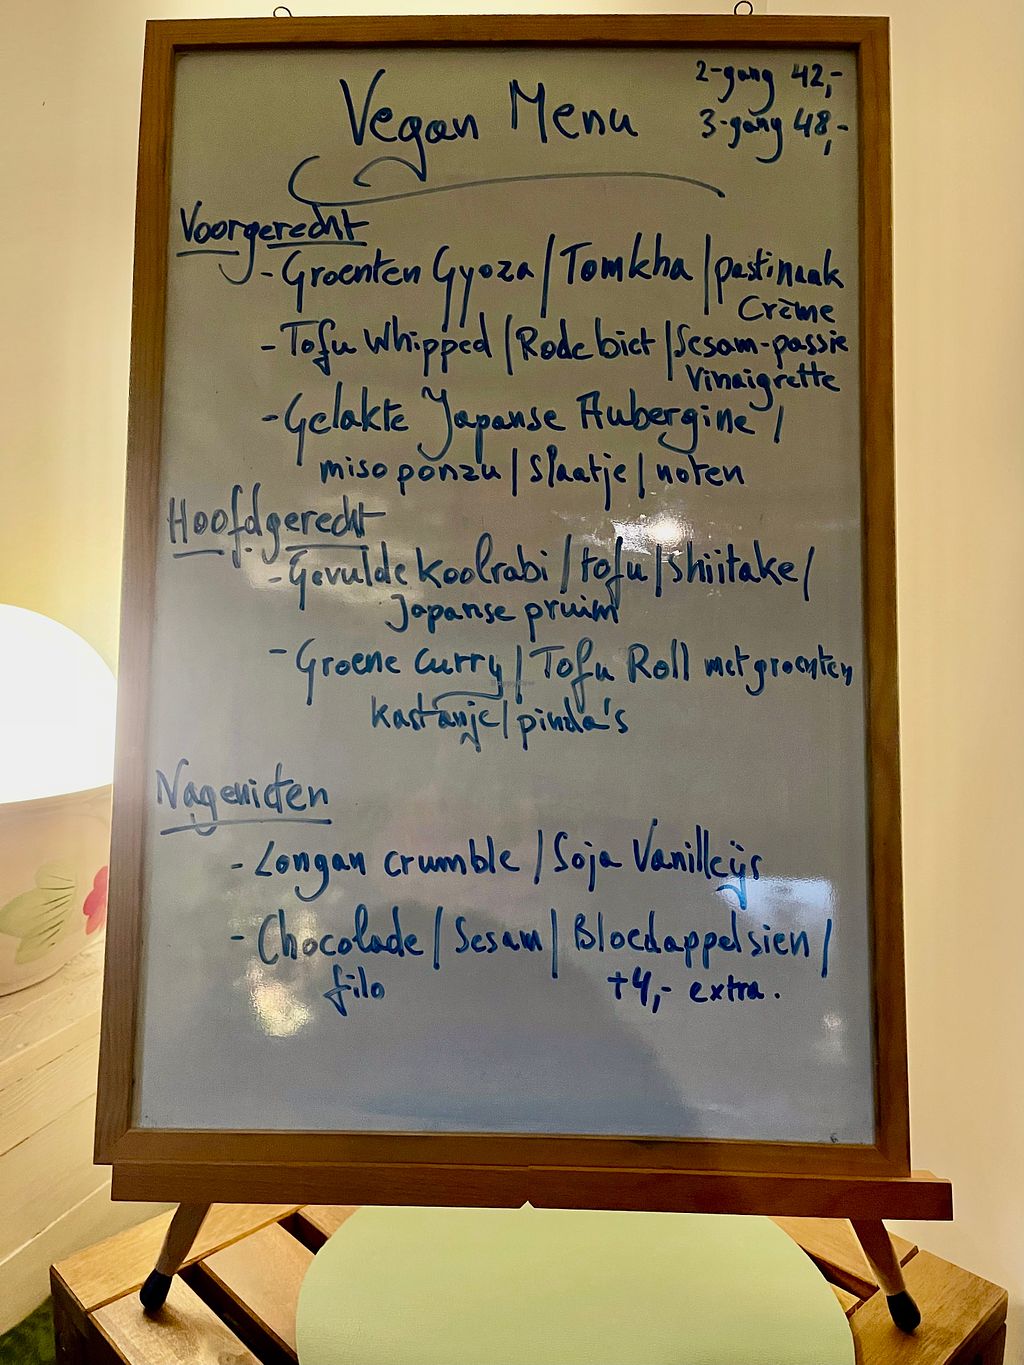 Vegan Menu
2-gang 42,-
3-gang 48,-
Voorgerecht
- Groenten Gyoza / Tomkha / pastinaak
Crème
- Tofu Whipped / Rode biet / Sesam-passie
Vinaigrette
- Gelakte Japanse Aubergine /
miso ponzu / slaatje / noten
Hoofdgerecht
- Gevulde koolrabi / tofu / shiitake /
Japanse pruim
- Groene curry / Tofu Roll met groenten
kastanje / pinda's
Nagenieten
- Longan crumble / Soja Vanilleijs
- Chocolade / Sesam / Bloedappelsien /
filo
+4,- extra.